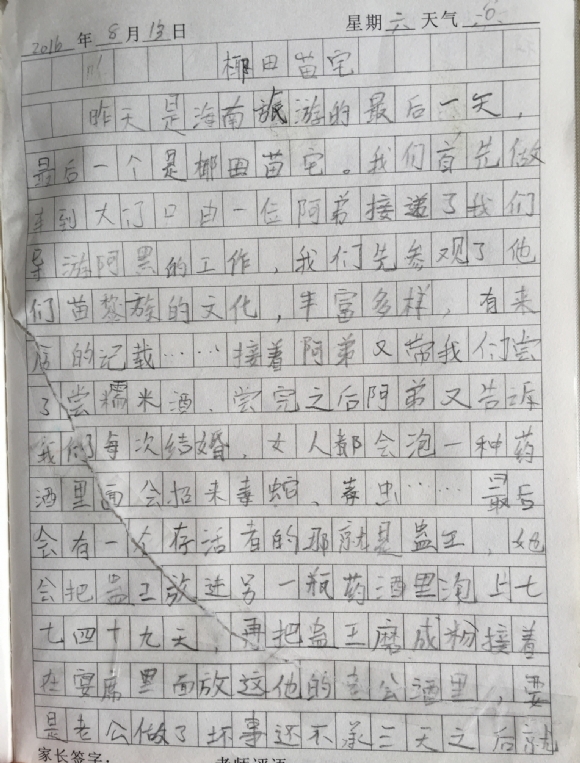 2016年8月13日 星期六 天气
椰田苗宅
昨天是海南旅游的最后一天，
最后一个是椰田苗宅。我们首先做
车到大门口由一位阿弟接递了我们
导游阿黑的工作，我们先参观了他
们苗黎族的文化，丰富多样，有来
的记载……接着阿弟又带我们尝
了尝糯米酒，尝完之后阿弟又告诉
我们每次结婚，女人都会泡一种药
酒里面会招来毒蛇、毒虫……最后
会有一个存活者的那就是蛊王，她
会把蛊王放进另一瓶药酒里泡上七
七四十九天，再把蛊王磨成粉接着
在宴席里面放这他的老公酒里，要
是老公做了坏事还不承三天之后就
家长签字： 老师评语